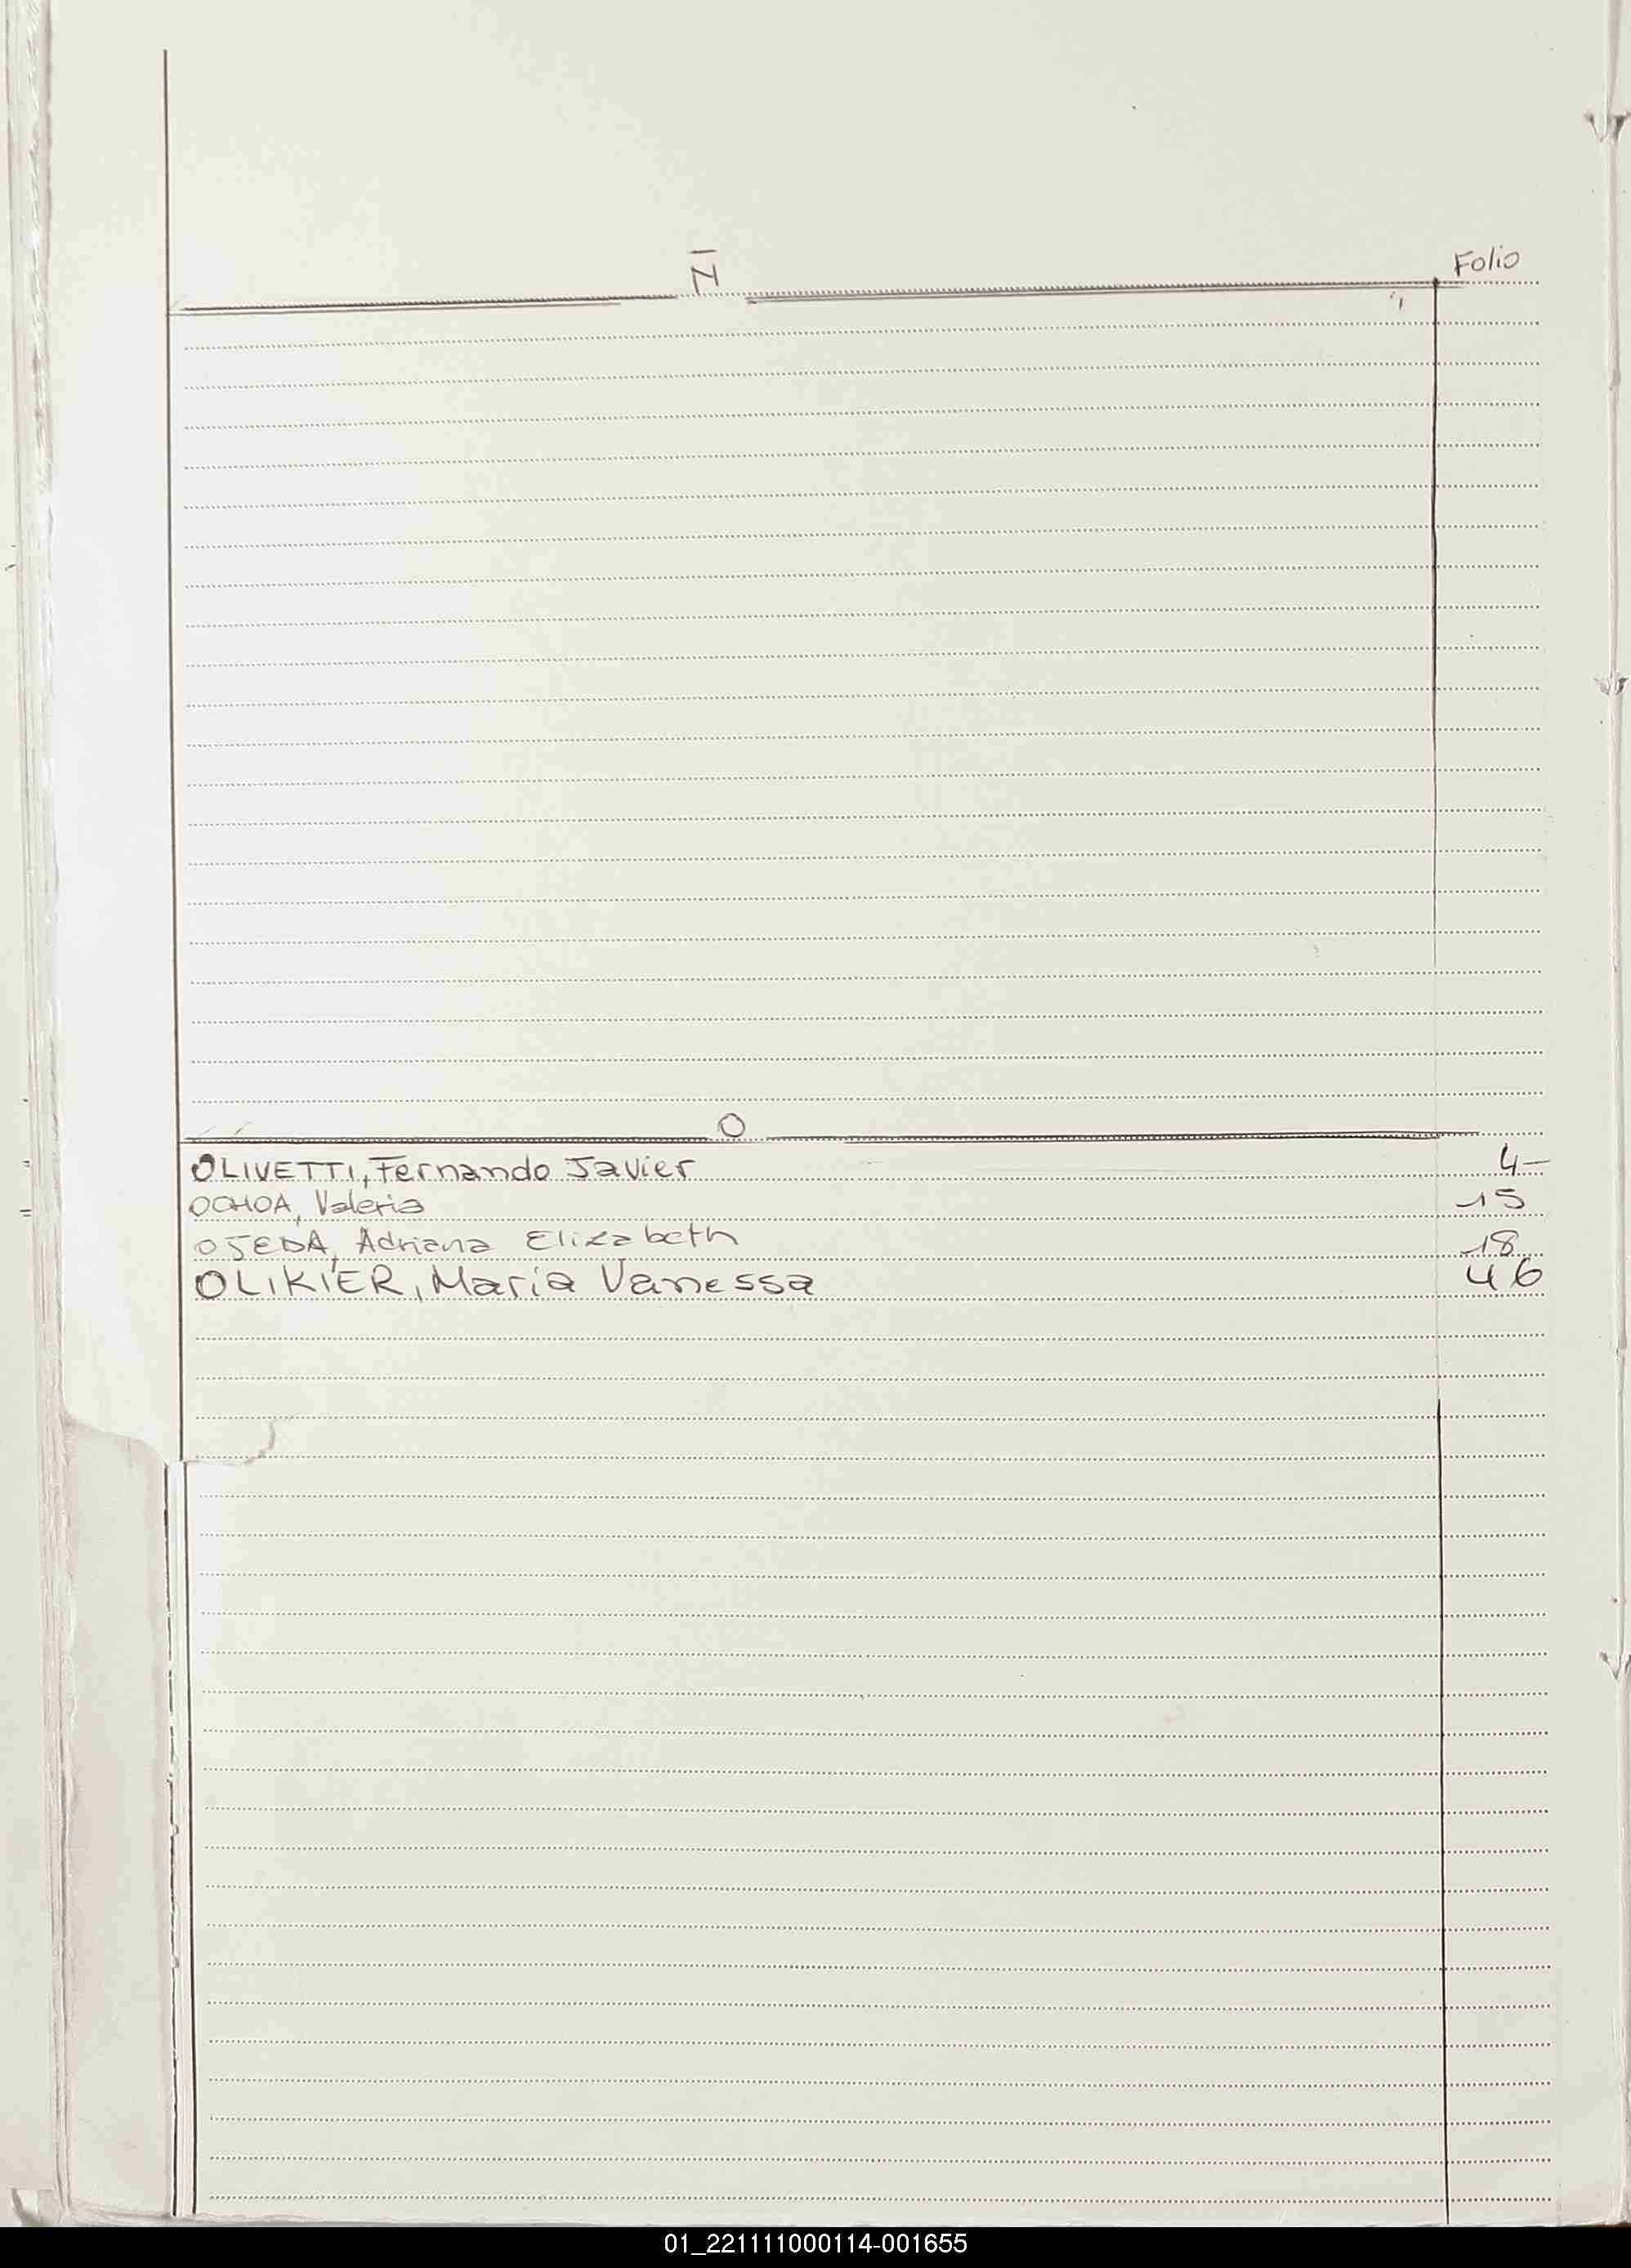 Ñ Folio
O
OLIVETTI, Fernando Javier 4-
OCHOA, Valeria 15
OJEDA, Adriana Elizabeth 18
OLIKIER, Maria Vanessa 46
01_221111000114-001655